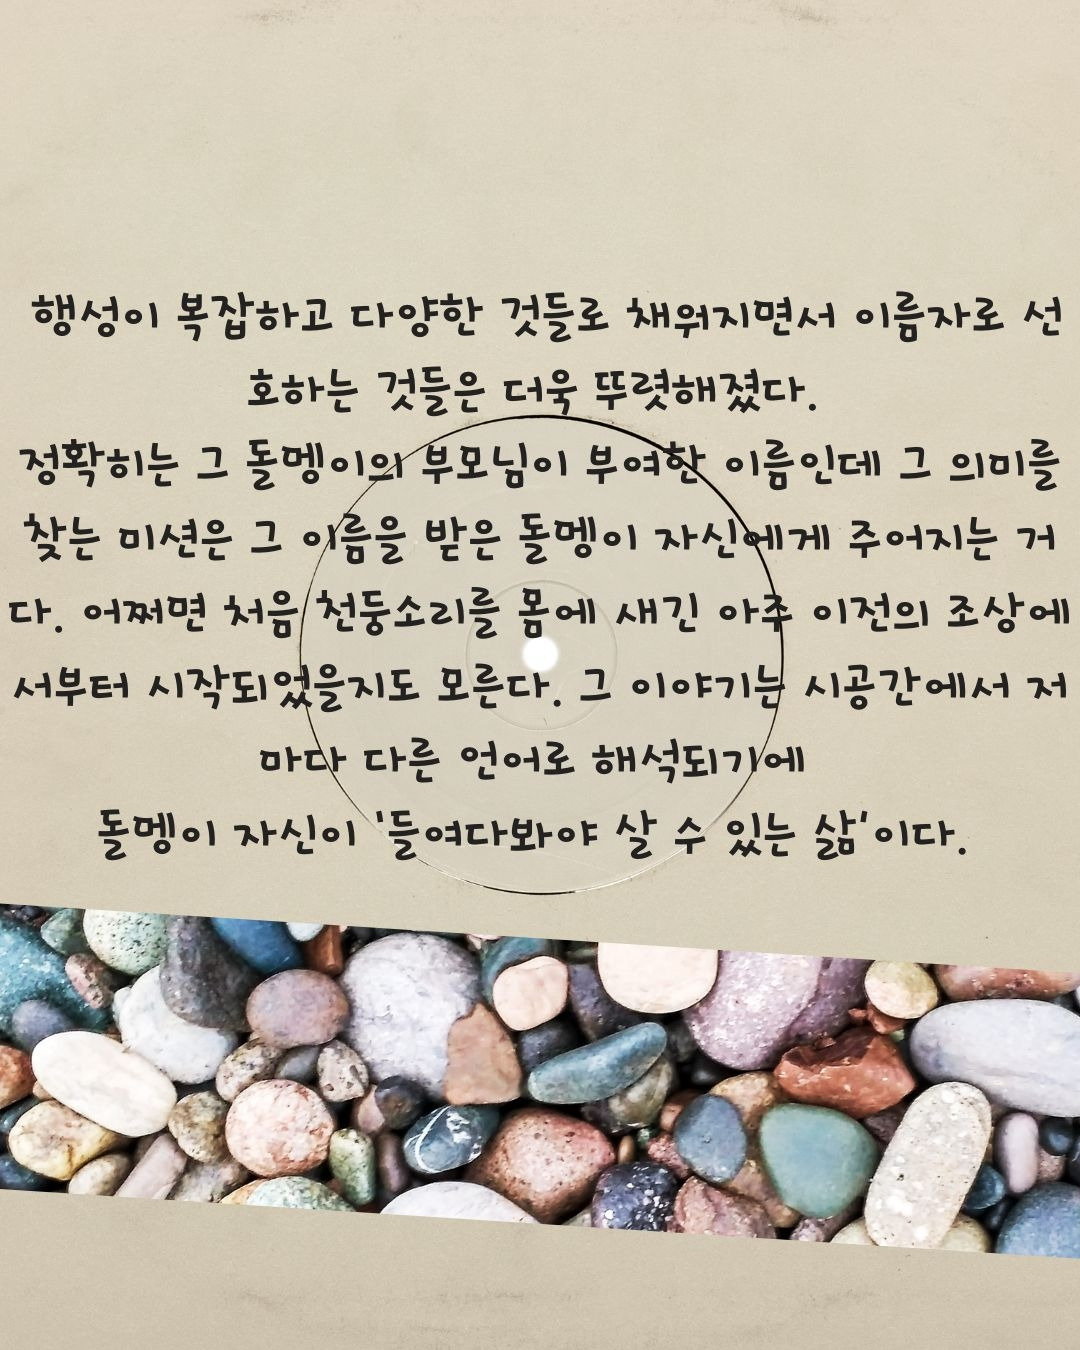 행성이 복잡하고 다양한 것들로 채워지면서 이름자로 선
호하는 것들은 더욱 뚜렷해졌다.
정확히는 그 돌멩이의 부모님이 부여한 이름인데 그 의미를
찾는 미션은 그 이름을 받은 돌멩이 자신에게 주어지는 거
다. 어쩌면 처음 천둥소리를 몸에 새긴 아주 이전의 조상에
서부터 시작되었을지도 모른다. 그 이야기는 시공간에서 저
마다 다른 언어로 해석되기에
돌멩이 자신이 '들여다봐야 살 수 있는 삶'이다.